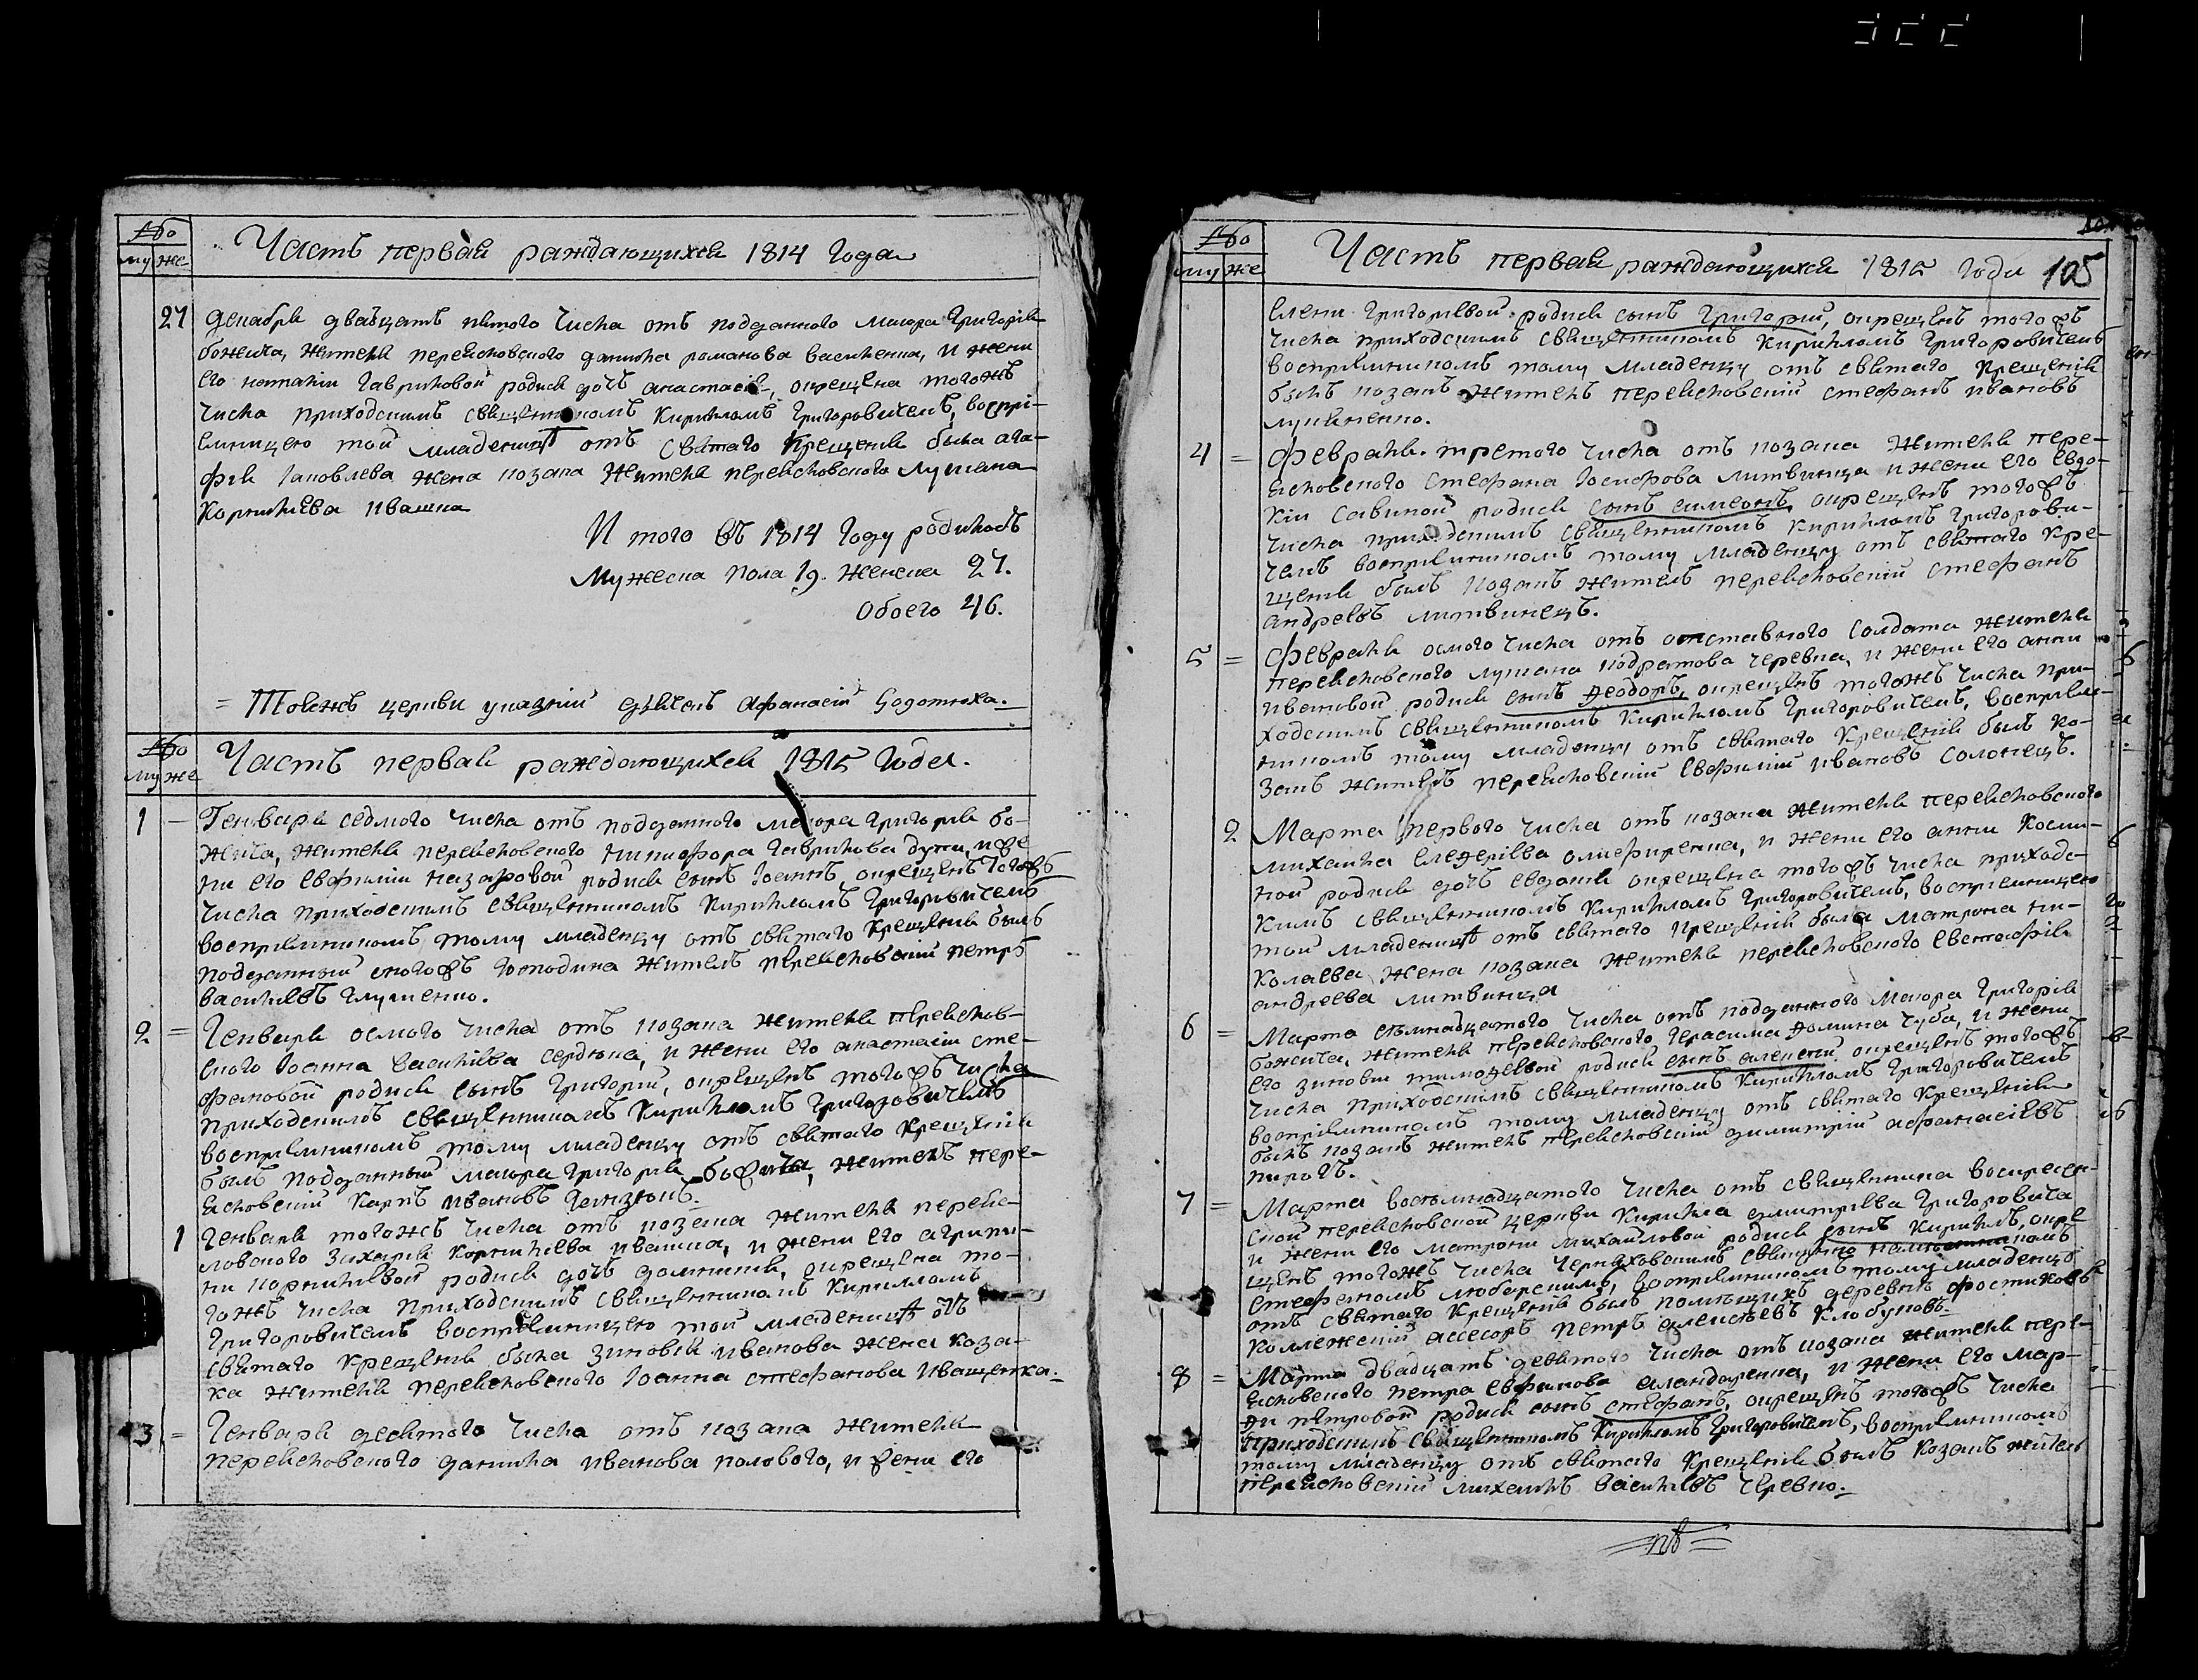 Часть первая раждающихся 1814 года
му же
27 декабря двадцать пятого числа отъ подданного маиора Григорія
божича, жителя переясловского данила романова василенка, и жени
его наталіи гавриловой родися дочь анастасія, окрещена тогожъ
числа приходскимъ священникомъ Кириломъ Григоровичемъ, воспрі-
емницею той младеницѣ отъ святаго крещенія была ага-
фія іаковлева жена козака жителя переясловского лукіана
Корнилїева ивашка
И того въ 1814 году родилось
мужеска пола 19. женска 27.
обоего 46.
= Тоеяжъ церкви указній дьячокъ Афанасій
Часть первая раждающихся 1815 года.
му же
1 – Генваря седмого числа отъ подданного маіора григорія бо-
жича, жителя переясловского никифора гаврилова дуки, и же
ни его евфиміи назаровой родися сынъ іоаннъ, окрещенъ тогожъ
числа приходскимъ священникомъ Кириломъ Григоровичемъ
воспріемникомъ тому младенцу отъ святаго крещенія былъ
подданный оногожъ господина жителъ переясловскій петръ
васильевъ глушенко.
2 = Генваря осмого числа отъ козака жителя переяслов-
ского іоанна василіева сердюка, и жени его анастасіи сте-
фановой родися сынъ Григорий, окрещенъ тогожъ числа
приходскимъ священникомъ Кириломъ Григоровичемъ
воспріемникомъ тому младенцу отъ святаго крещенія
былъ подданный маіора григорія божича, жителъ пере-
ясловскій Карпъ ивановъ
1 Генваря тогожъ числа отъ козака жителя переяс-
ловского захарія корнилїева ивашка, и жени его агрипи-
ни корнилїевой родися дочь домникія, окрещена то-
гожъ числа приходскимъ священникомъ Кириломъ
Григоровичемъ воспріемницею той младеницѣ отъ
святаго крещенія была зиновія иванова жена коза-
ка жителя переясловского іоанна стефанова иващенка.
3 = Генваря десятого числа отъ козака жителя
переясловского данила иванова полового, и жени его
Часть первая раждающихся 1815 года 105
му же
елени григоріевой родися сынъ григорій, окрещенъ тогожъ
числа приходскимъ священникомъ Кириломъ Григоровичемъ
воспріемникомъ тому младенцу отъ святаго крещенія
былъ козакъ жителъ переясловскій стефанъ ивановъ
лукіяненко.
4 = февраля третого числа отъ козака жителя пере-
ясловского стефана іосифова литвинца и жени его евдо-
кіи савиной родися сынъ симеонъ, окрещенъ тогожъ
числа приходскимъ священникомъ Кириломъ Григорови-
чемъ воспріемникомъ тому младенцу отъ святаго кре-
щенія былъ козакъ жителъ переясловскій стефанъ
андреевъ литвинецъ.
5 = февраля осмого числа отъ отставного солдата жителя
переясловского лукіана кодратова черевка, и жени его анни
ивановой родися сынъ Ѳеодоръ, окрещенъ тогожъ числа при-
ходскимъ священникомъ Кириломъ Григоровичемъ, воспріем-
никомъ тому младенцу отъ святаго крещенія былъ ко-
закъ жителъ переясловскій евфимій ивановъ солонецъ.
2 Марта первого числа отъ козака жителя переясловского
михаила елевѳеріева олиференка, и жени его анни косми-
ной родися дочь евдокія окрещена тогожъ числа приходс-
кимъ священникомъ Кириломъ Григоровичемъ, воспріемницею
той младеницѣ отъ святаго крещенія была матрона ни-
колаева жена козака жителя переясловского евстафія
андреева литвинца
6 = Марта семнадцатого числа отъ подданного маіора григорія
божича, жителя переясловского герасима Ѳомина чуба, и жени
его зиновіи тимоѳеевой родися сынъ алексій, окрещенъ тогожъ
числа приходскимъ священникомъ Кириломъ Григоровичемъ
воспріемникомъ тому младенцу отъ святаго крещенія
былъ козакъ жителъ переясловскій димитрій афанасіевъ
пирогъ.
7 = Марта восемнадцатого числа отъ священника воскресен-
ской переясловской церкви Кирила димитріева григоровича
и жени его матрони михайловой родися сынъ Кирилъ, окре
щенъ тогожъ числа черняховскимъ священно
стефаномъ люборскимъ, воспріемникомъ тому младенцу
отъ святаго крещенія былъ помѣщикъ деревнѣ фостиковъ
коллежскій ассесоръ петръ алексѣевъ Клобуковъ.
8 = Марта двадцать девятого числа отъ козака жителя пере-
ясловского петра евфимова скандаренка, и жени его мар-
Ѳи петровой родися сынъ стефанъ, окрещенъ тогожъ числа
приходскимъ священникомъ Кириломъ Григоровичемъ, воспріемникомъ
тому младенцу отъ святаго крещенія былъ козакъ жителъ
переясловскій михаилъ васильевъ черевко.